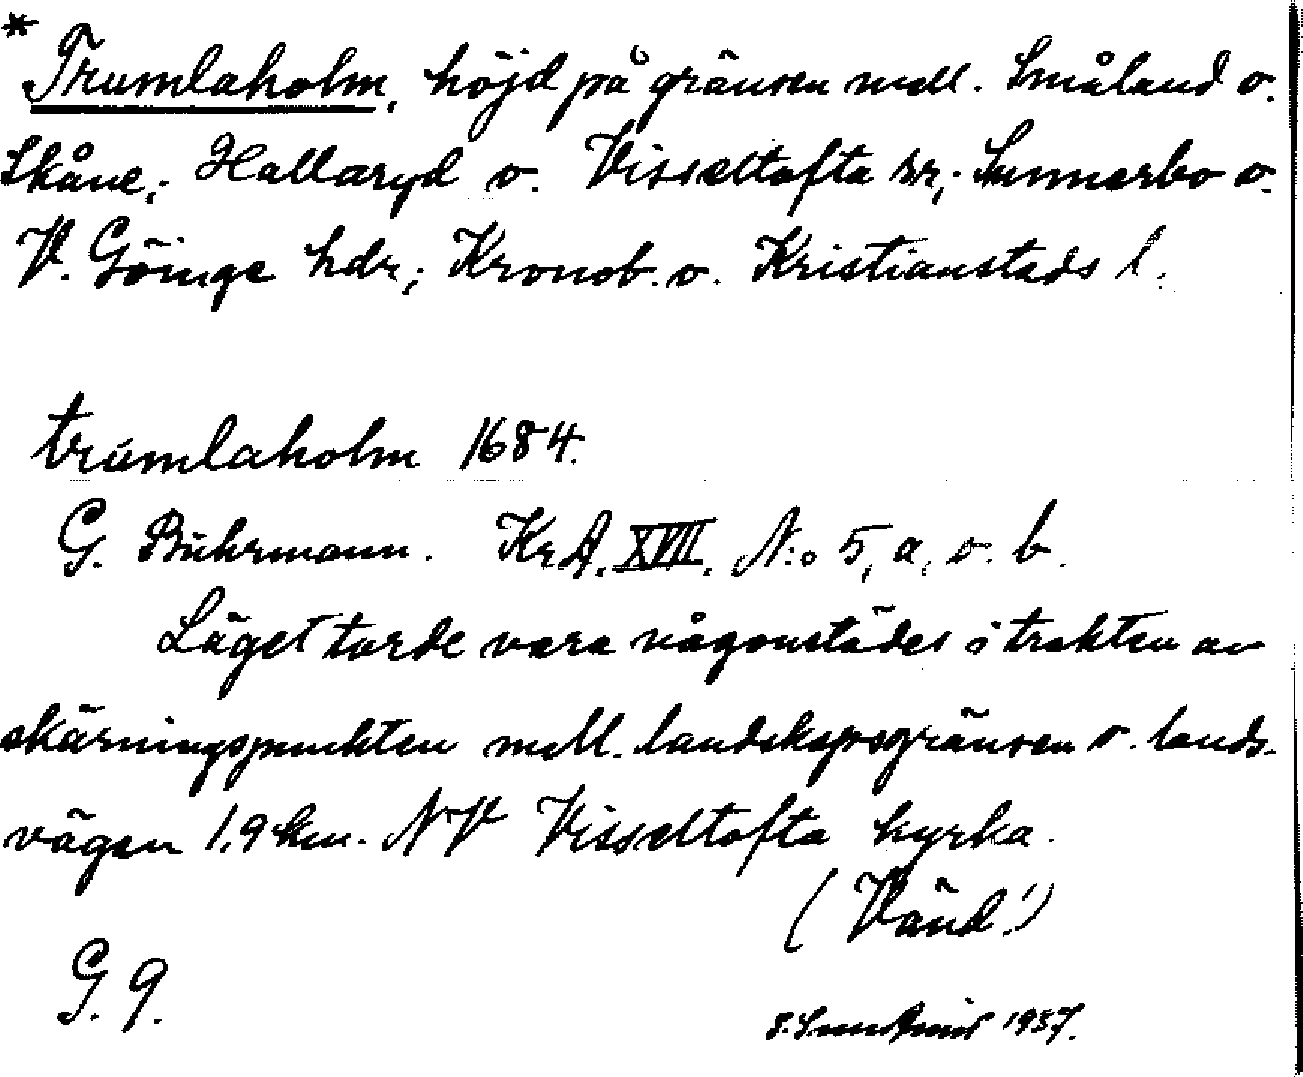 * Trumlaholm, höjd på gränsen mell. Småland o.
Skåne; Hallaryd o. Visseltofta snr; Sunnerbo o.
V. Göinge hdr; Kronob. o. Kristianstads l.
trumlaholm 1684.
G. Buhrmann. KrA. XVII. N:o 5, a, o. b.
Läget torde vara någonstädes i trakten av
skärningspunkten mell. landskapsgränsen o. lands-
vägen 1,9 km. NV Visseltofta kyrka.
(Vänd!)
G. 9.
1937.